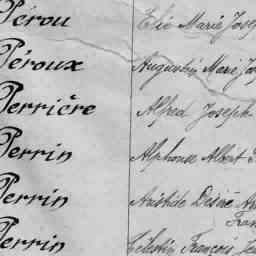 Pérou Elie Marie Josep
Péroux Augustin Marie Jos
Perrière Alfred Joseph
Perrin Alphonse Albert
Perrin Aristide Désiré Au
Fran
Perrin Célestin François Je